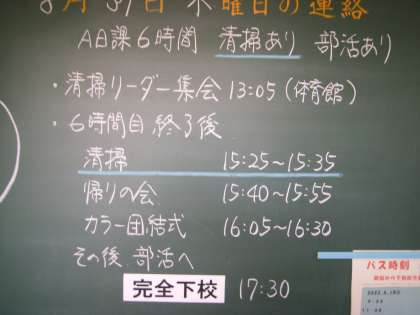 8月31日 木曜日の連絡
A日課6時間 清掃あり 部活あり
・清掃リーダー集会 13:05(体育館)
・6時間目 終了後
清掃 15:25~15:35
帰りの会 15:40~15:55
カラー団結式 16:05~16:30
その後 部活へ
完全下校 17:30
バス時刻